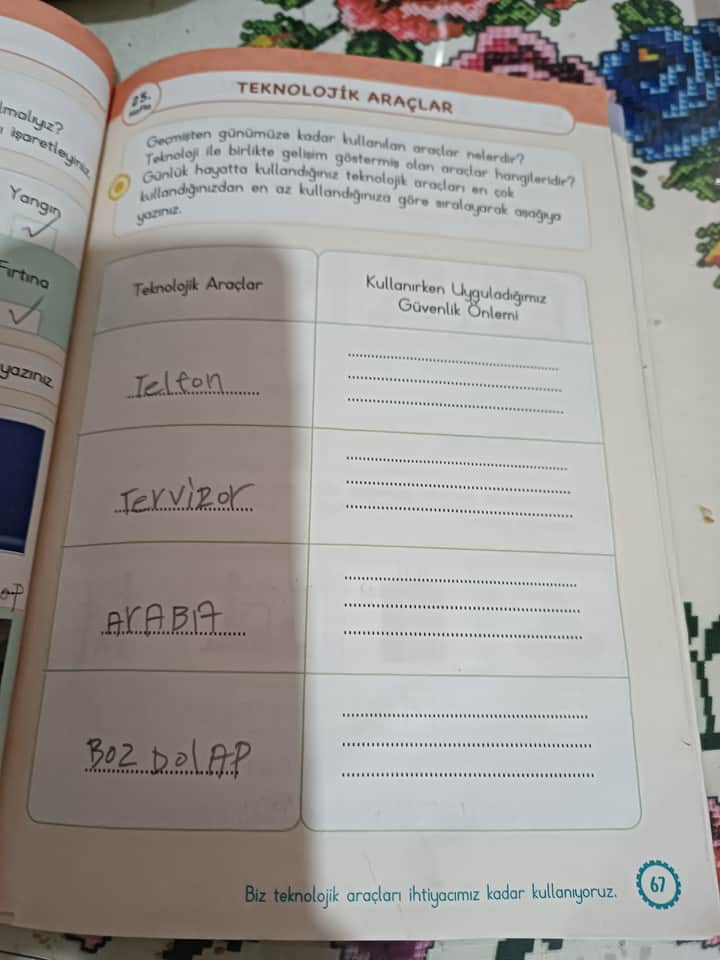 lmalıyız?
ı işaretleyiniz.
Yangın
Fırtına
yazınız
25.
Hafta
TEKNOLOJİK ARAÇLAR
Geçmişten günümüze kadar kullanılan araçlar nelerdir?
Teknoloji ile birlikte gelişim göstermiş olan araçlar hangileridir?
Günlük hayatta kullandığınız teknolojik araçları en çok
kullandığınızdan en az kullandığınıza göre sıralayarak aşağıya
yazınız.
Teknolojik Araçlar
Kullanırken Uyguladığımız
Güvenlik Önlemi
Telfon
Tervizor
ArABıA
BOZ DolAP
Biz teknolojik araçları ihtiyacımız kadar kullanıyoruz.
67